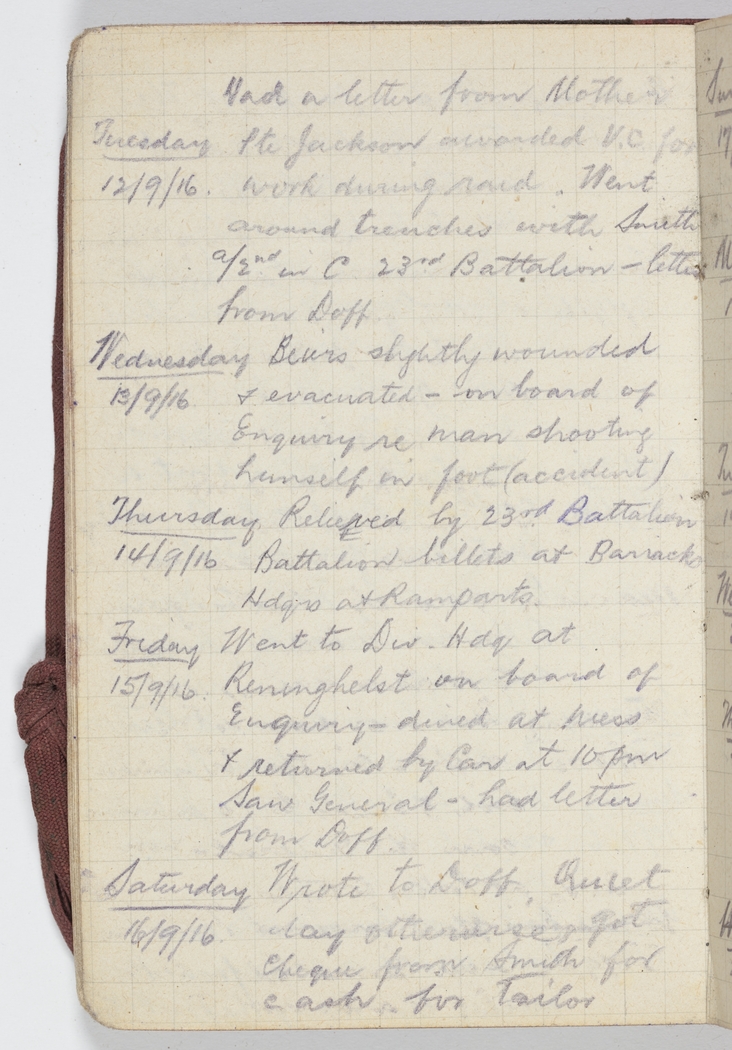 Had a letter from Mother
Tuesday Pte Jackson awarded V.C for
12/9/16. work during raid. Went
around trenches with Smith
a/2nd in C 23rd Battalion - letter
from Doff
Wednesday slightly wounded
13/9/16 & evacuated - on board of
Enquiry re man shooting
himself in foot (accident)
Thursday Relieved by 23rd Battalion
14/9/16 Battalion billets at Barracks
Hdqrs at Ramparts.
Friday Went to Div. Hdq at
15/9/16. Reninghelst on board of
Enquiry - dined at mess
& returned by Car at 10 pm
Saw General - had letter
from Doff.
Saturday Wrote to Doff. Quiet
16/9/16. day otherwise, got
cheque from Smith for
cash for Tailor